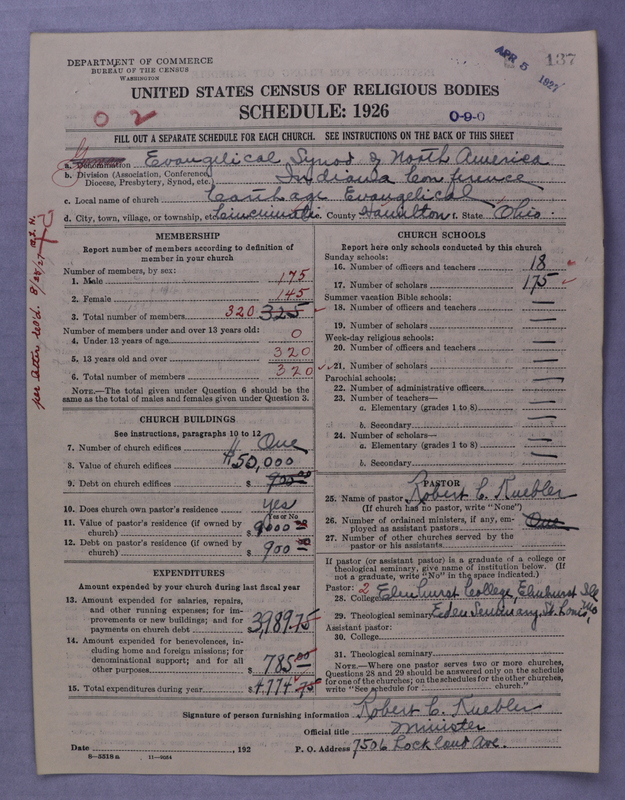 DEPARTMENT OF COMMERCE
BUREAU OF THE CENSUS
WASHINGTON
APR 5 1927
137
UNITED STATES CENSUS OF RELIGIOUS BODIES
SCHEDULE: 1926
0 2
0-9-0
FILL OUT A SEPARATE SCHEDULE FOR EACH CHURCH. SEE INSTRUCTIONS ON THE BACK OF THIS SHEET
a. Denomination Evangelical Synod of North America
b. Division (Association, Conference, Diocese, Presbytery, Synod, etc.) Indiana Conference
c. Local name of church Carthage Evangelical
d. City, town, village, or township, etc. Cincinnati e. County Hamilton f. State Ohio.
per letter rec'd. 8/25/27
MEMBERSHIP
Report number of members according to definition of member in your church
Number of members, by sex:
1. Male 175
2. Female 145
3. Total number of members 320 325
Number of members under and over 13 years old:
4. Under 13 years of age 0
5. 13 years old and over 320
6. Total number of members 320
NOTE.—The total given under Question 6 should be the same as the total of males and females given under Question 3.
CHURCH BUILDINGS
See instructions, paragraphs 10 to 12
7. Number of church edifices One
8. Value of church edifices $50,000
9. Debt on church edifices $ 900.00
10. Does church own pastor's residence? yes
Yes or No
11. Value of pastor's residence (if owned by church) $ 9000 00
12. Debt on pastor's residence (if owned by church) $ 900 00
EXPENDITURES
Amount expended by your church during last fiscal year
13. Amount expended for salaries, repairs, and other running expenses; for improvements or new buildings; and for payments on church debt $ 3,989.75
14. Amount expended for benevolences, including home and foreign missions; for denominational support; and for all other purposes $ 785.00
15. Total expenditures during year $ 4,774 75
CHURCH SCHOOLS
Report here only schools conducted by this church
Sunday schools:
16. Number of officers and teachers 18
17. Number of scholars 175
Summer vacation Bible schools:
18. Number of officers and teachers —
19. Number of scholars —
Week-day religious schools:
20. Number of officers and teachers —
21. Number of scholars —
Parochial schools:
22. Number of administrative officers —
23. Number of teachers—
a. Elementary (grades 1 to 8) —
b. Secondary —
24. Number of scholars—
a. Elementary (grades 1 to 8) —
b. Secondary —
PASTOR
25. Name of pastor Robert C. Kuebler
(If church has no pastor, write "None")
26. Number of ordained ministers, if any, employed as assistant pastors One
27. Number of other churches served by the pastor or his assistants
If pastor (or assistant pastor) is a graduate of a college or theological seminary, give name of institution below. (If not a graduate, write "No" in the space indicated.)
Pastor: 2
28. College Elmhurst College, Elmhurst Ill
29. Theological seminary Eden Seminary, St. Louis, Mo.
Assistant pastor:
30. College
31. Theological seminary
NOTE.—Where one pastor serves two or more churches, Questions 28 and 29 should be answered only on the schedule for one of the churches; on the schedules for the other churches, write "See schedule for church."
Signature of person furnishing information Robert C. Kuebler
Official title Minister
Date , 192 P. O. Address 7506 Lockland Ave.
8—5518a 11—9054